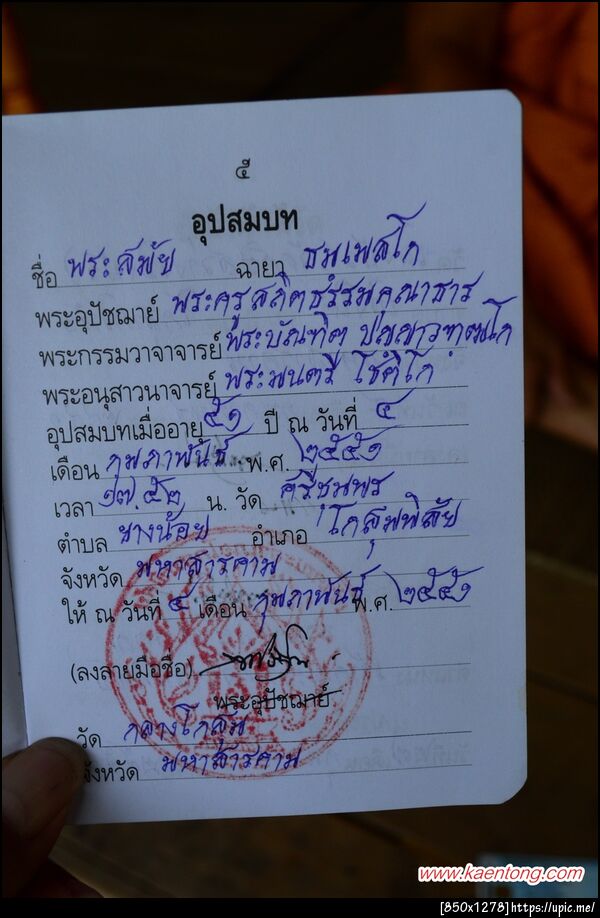 ๕
อุปสมบท
ชื่อ พระสมัย ฉายา ธมเมสโก
พระอุปัชฌาย์ พระครูสถิตธรรมคุณาธาร
พระกรรมวาจาจารย์ พระบัณฑิต
พระอนุสาวนาจารย์ พระมนตรี โชติโก
อุปสมบทเมื่ออายุ ๕๑ ปี ณ วันที่ ๔
เดือน กุมภาพันธ์ พ.ศ. ๒๕๕๑
เวลา ๑๗.๕๒ น. วัด ศรีชุมพร
ตำบล ยางน้อย อำเภอ โกสุมพิสัย
จังหวัด มหาสารคาม
ให้ ณ วันที่ ๔ เดือน กุมภาพันธ์ พ.ศ. ๒๕๕๑
(ลงลายมือชื่อ)
พระอุปัชฌาย์
วัด กลางโกสุม
จังหวัด มหาสารคาม
www.kaentong.com
[850x1278]https://upic.me/